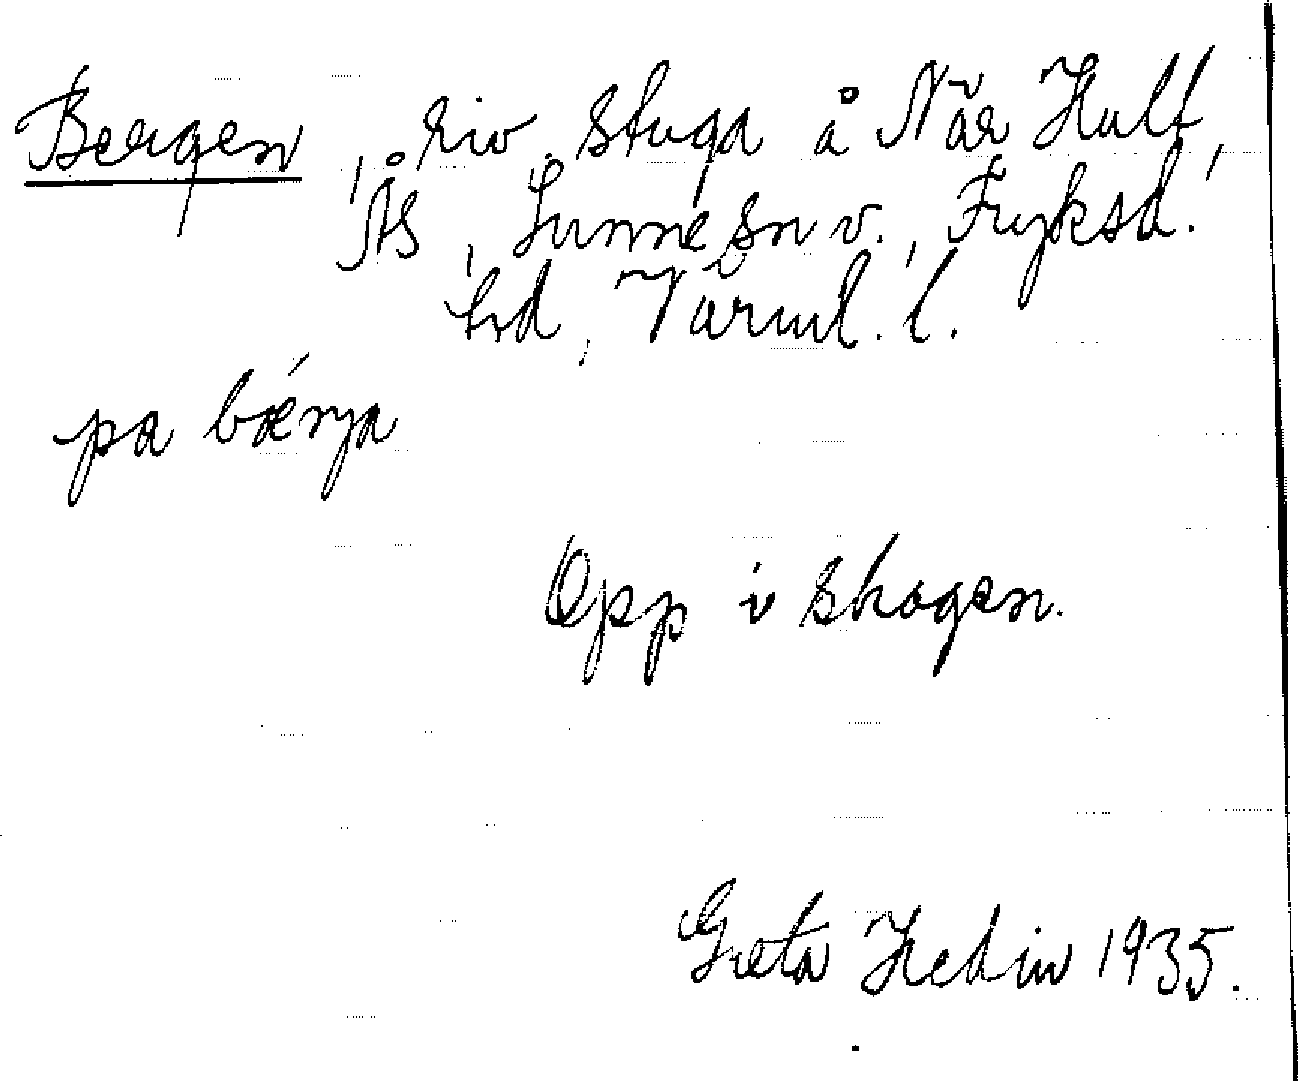 Bergen, riv. stuga å När Hult,
Ås, Sunne sn v., Fryksd.
hd, Värml. l.
pa bǽrja
Opp i skogen.
Greta Hedin 1935.